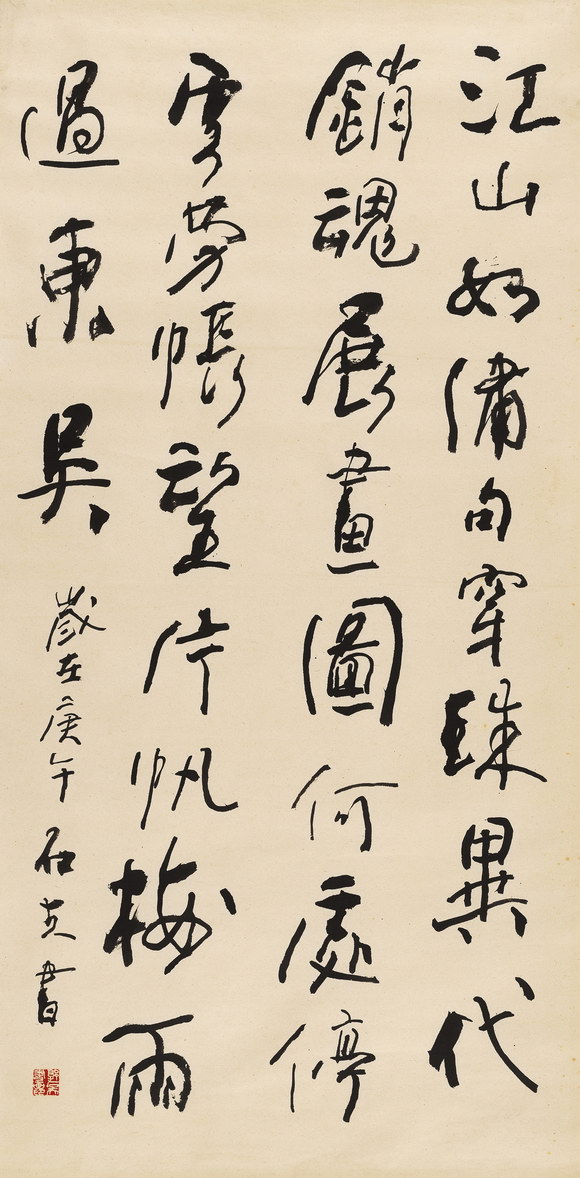 江山如繡句穿珠異代
銷魂展畫圖何處停
雲勞悵望片帆梅雨
過東吳
歲在庚午 石其書